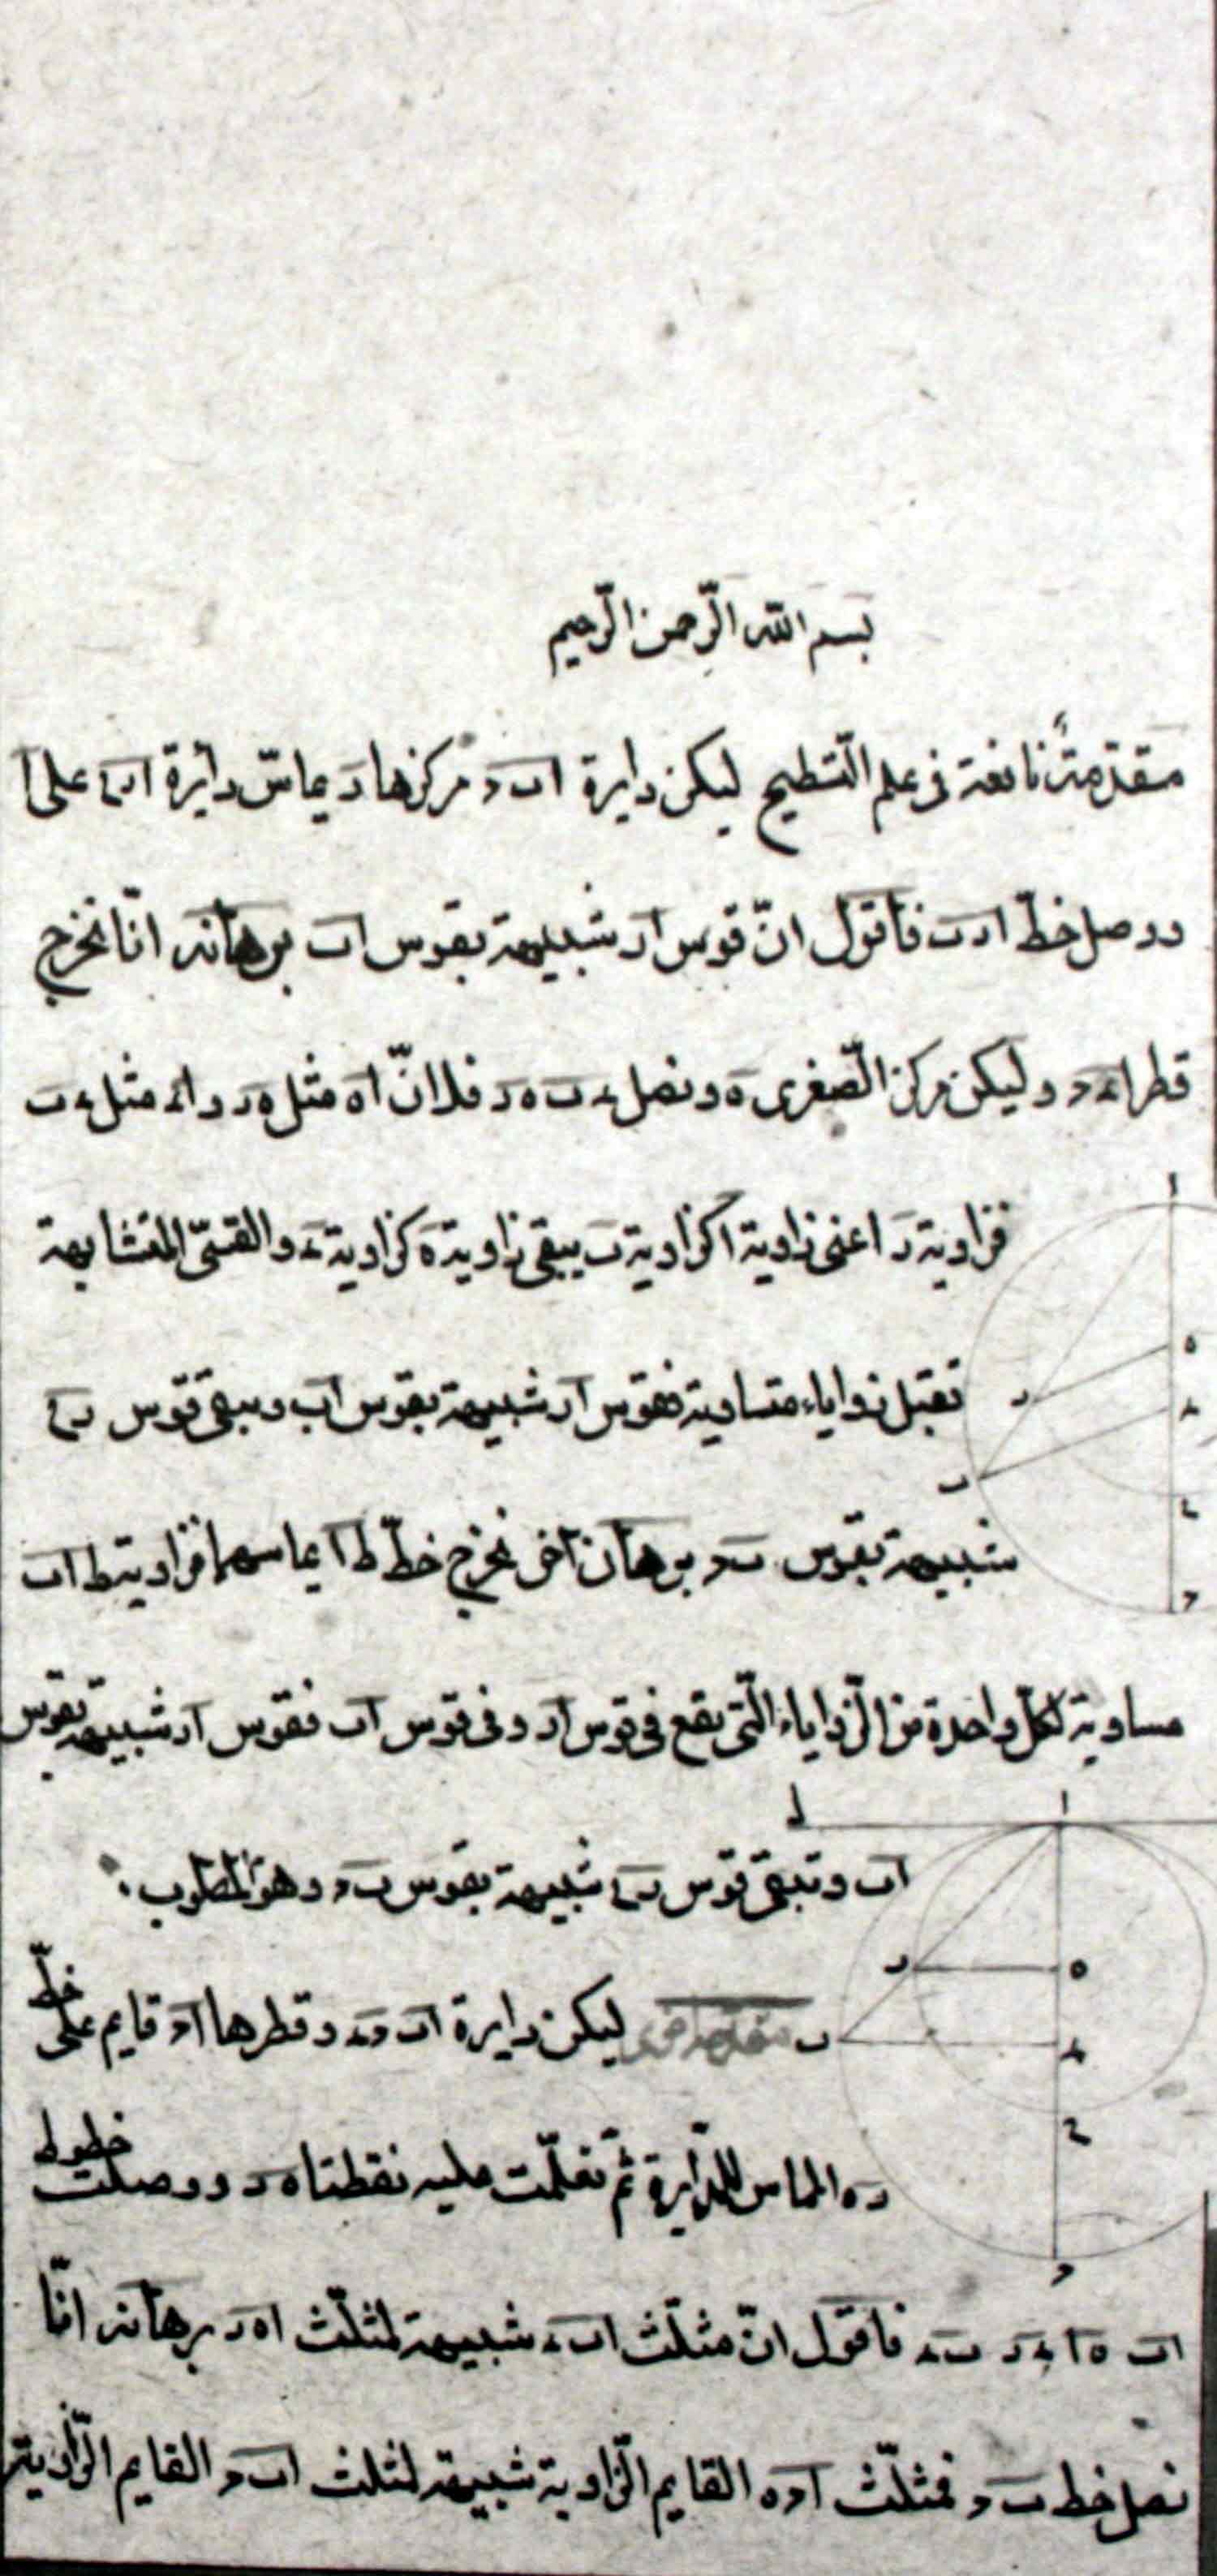 بسم الله الرّحمن الرّحيم
مقدّمةٌ نافعة فى علم التّسطيح ليكن دايرة اٮح ومركزها د يماسّ دائرة على ا
ووصل خطّ ادب فاقول انّ قوس اد شبيهة بقوس اب برهانه انّا نخرج
قطر وليكن مركز الصّغرى ه ونصل ه د فلانّ اه مثل ه د مثل
فزاوية د اعنى زاوية ا كزاوية ب يبقى زاوية ه كزاوية والقسىّ المتشابهة
تقبل زواياء متساوية فقوس اد شبيهة بقوس اب ويبقى قوس
شبيهة بقوس برهان آخر نخرج خطّ ط ا يماسهما فزاوية ط اب
مساوية لكلّ واحدة من الزّواياء الّتى يقع فى قوس اد وفى قوس اب فقوس اد شبيهة بقوس
اب وتبقى قوس شبيهة بقوس وهو المطلوب
ب ليكن دايرة وقطرها قايم على خطّ
المماس للدّايرة ثمّ تعلّمت عليه نقطتا ه د ووصلت خطوط
اب ه ا فاقول انّ مثلّث شبيهة لمثلّث اه د برهانه انّا
نصل خطّ فمثلّث القايم الزّاوية شبيهة لمثلث القايم الزّاوية
ا
ه
د
ب
ح
ط
ا
د
ه
ب
ح